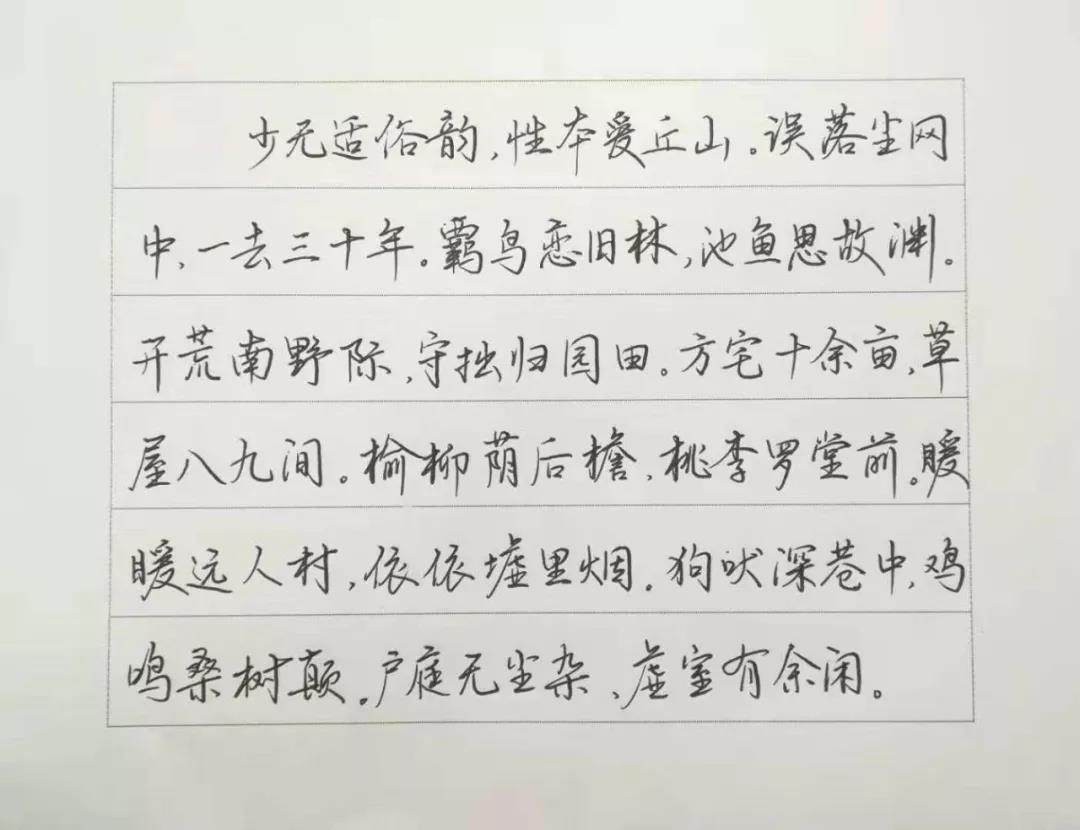 少无适俗韵,性本爱丘山。误落尘网
中,一去三十年。羁鸟恋旧林,池鱼思故渊。
开荒南野际,守拙归园田。方宅十余亩,草
屋八九间。榆柳荫后檐,桃李罗堂前。暖
暖远人村,依依墟里烟。狗吠深巷中,鸡
鸣桑树颠。户庭无尘杂、虚室有余闲。